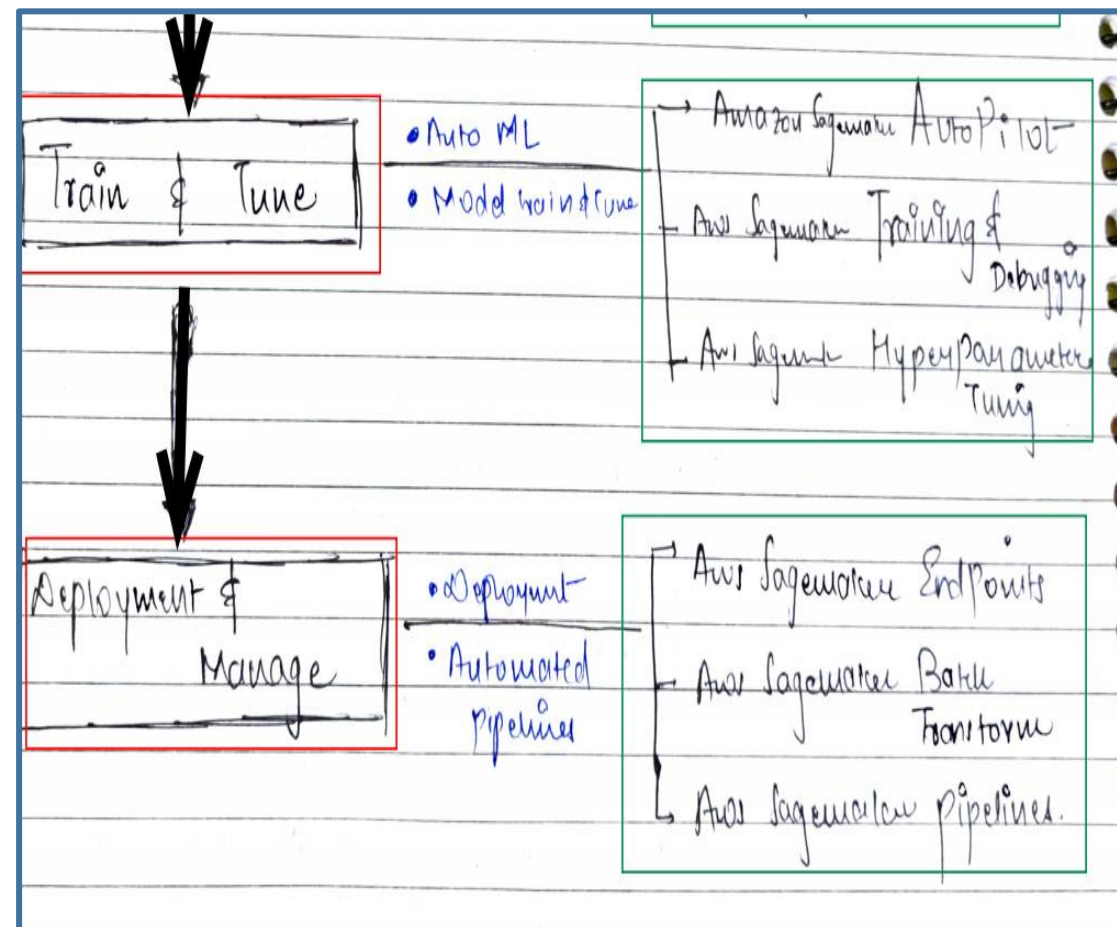 Train & Tune
• Auto ML
• Model train & Tune
Amazon Sagemaker AutoPilot
Aws Sagemaker Training &
Debugging
Aws Sagemaker Hyperparameter
Tunig
Deployment &
Manage
• Deployment
• Automated
pipelines
Aws Sagemaker EndPoints
Aws Sagemaker Batch
Transform
Aws Sagemaker pipelines.